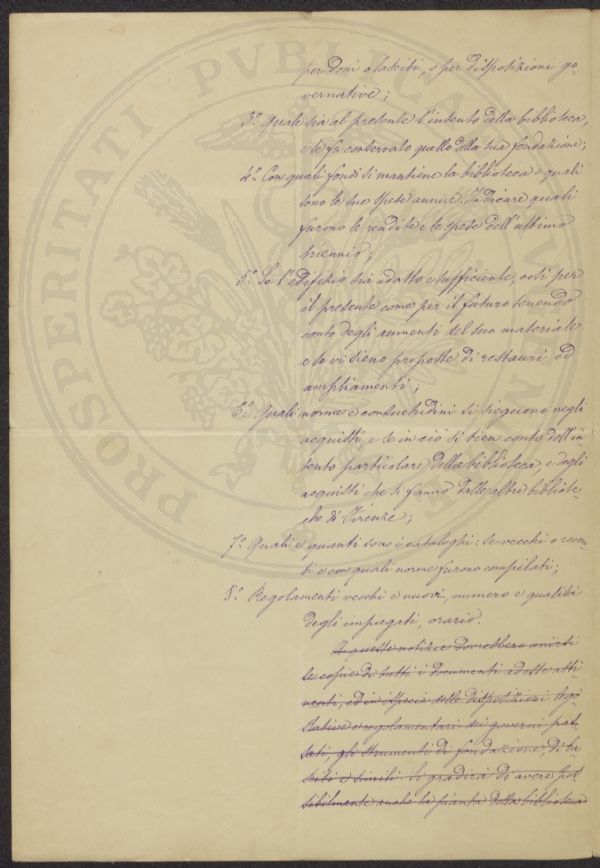 per doni o lasciti, o per disposizioni go-
vernative;
3.º Quale sia al presente l'intento della biblioteca,
e se fu conservato quello della sua fondazione;
4.º Con quali fondi si mantiene la biblioteca e quali
sono le sue spese annue. Indicare quali
furono le rendite e le spese dell'ultimo
triennio;
5.º Se l'edifizio sia adatto e sufficiente, così per
il presente come per il futuro tenendo
conto degli aumenti del suo materiale
e se vi sieno proposte di restauri od
ampliamenti;
6.º Quali norme e consuetudini si seguono negli
acquisti, e se in ciò si tien conto dell'in
tento particolare della biblioteca, e degli
acquisti che si fanno dalle altre bibliote-
che di Firenze;
7.º Quali e quanti sono i cataloghi: se vecchi o recen
ti e con quali norme furono compilati;
8.º Regolamenti vecchi e nuovi, numero e qualità
degli impiegati, orario.
A queste notizie dovrebbero unirsi
le copie di tutti i documenti adatte atti
nenti, ed in ispecie delle disposizioni legi
slative e regolamentari dei governi pas
sati, gli strumenti di fondazione, di la
sciti e simili. Si gradirà di avere pos
sibilmente anche la pianta della biblioteca
PROSPERITATI PVBLICAE